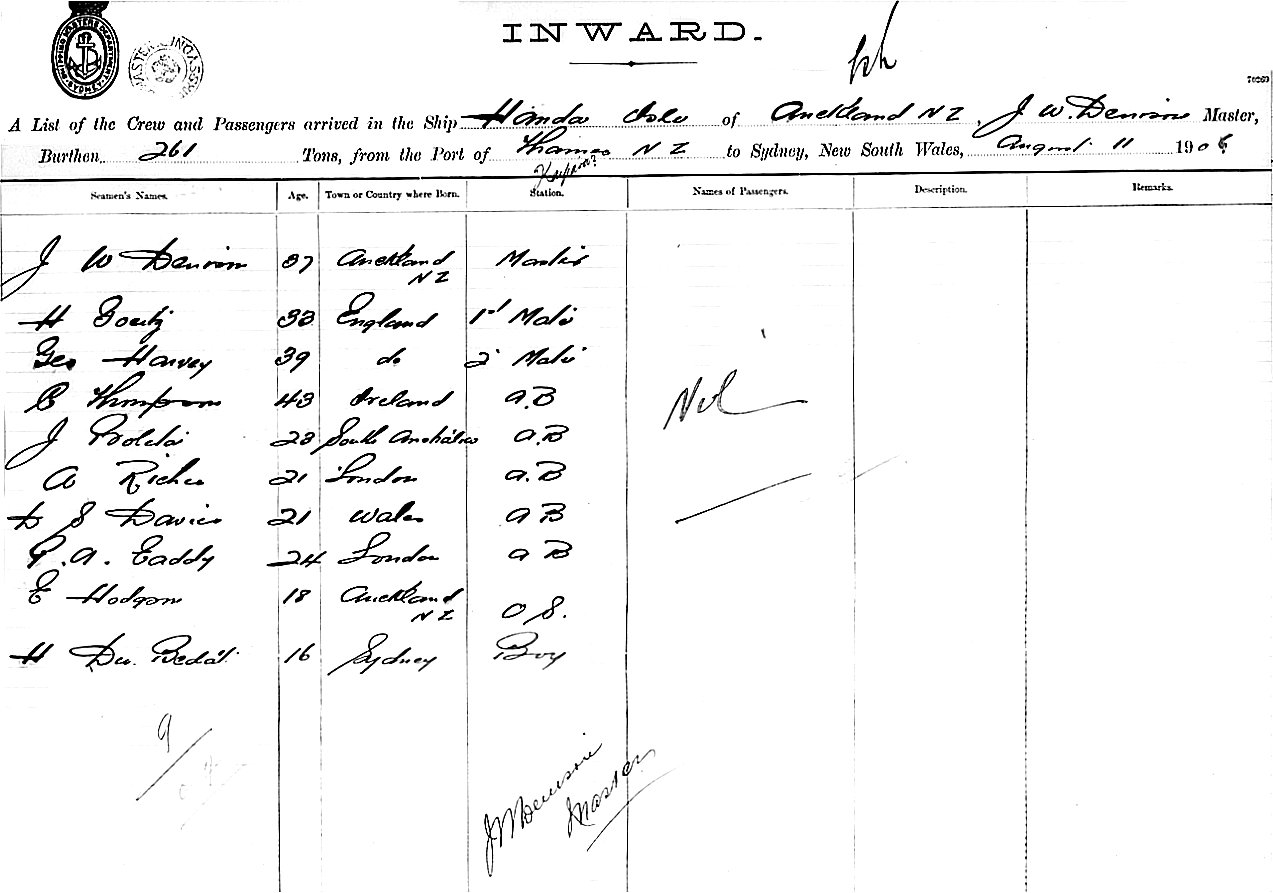 INWARD.
70269
A List of the Crew and Passengers arrived in the Ship Handa Isle of Auckland NZ, J W. Denison Master,
Burthen 261 Tons, from the Port of Thames NZ to Sydney, New South Wales, August 11 1906
Seamen's Names. Age. Town or Country where Born. Station. Names of Passengers. Description. Remarks.
J W Denison 37 Auckland NZ Master
H 33 England 1st Mate
Geo Harvey 39 do 2 Mate
Thompson 43 Ireland A.B
J 23 South Australia A.B
Nil
A 21 London A.B
D S Davies 21 Wales A B
P.A. Eaddy 24 London A B
E Hodgson 18 Auckland NZ O S.
H Du. 16 Sydney Boy
9
J W Denison
Master